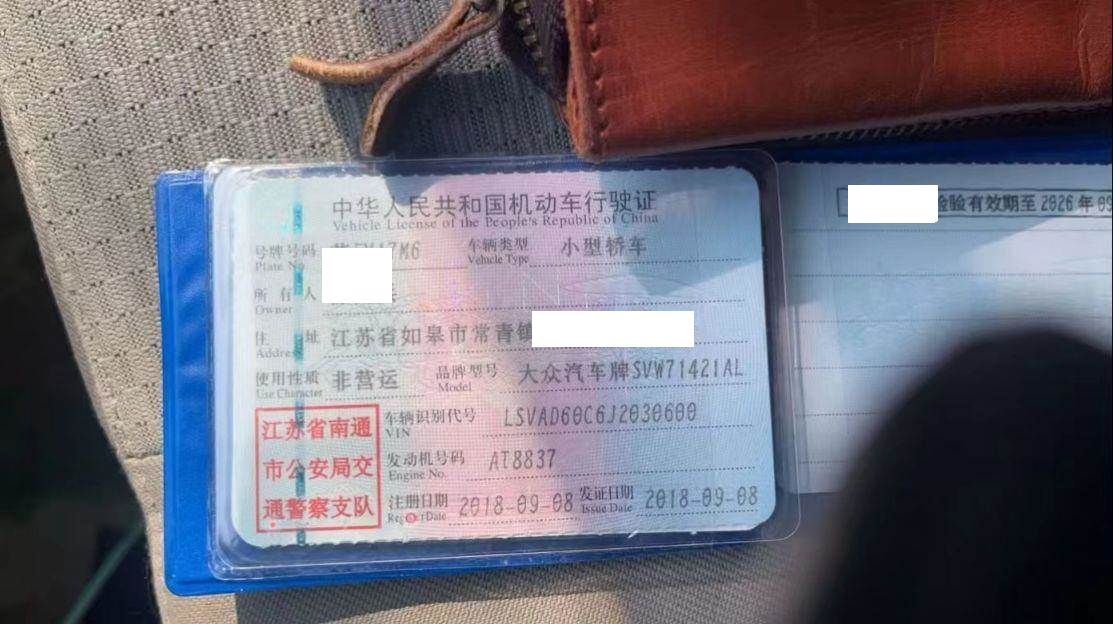 中华人民共和国机动车行驶证
Vehicle License of the People's Republic of China
号牌号码 17M6 车辆类型 小型轿车
Plate No. Vehicle Type
所有人
Owner
住址 江苏省如皋市常青镇
Address
使用性质 非营运 品牌型号 大众汽车牌SVW71421AL
Use Character Model
车辆识别代号 LSVAD60C6J2030600
VIN
发动机号码 AT8837
Engine No.
注册日期 2018-09-08 发证日期 2018-09-08
Register Date Issue Date
江苏省南通
市公安局交
通警察支队
检验有效期至2026年09